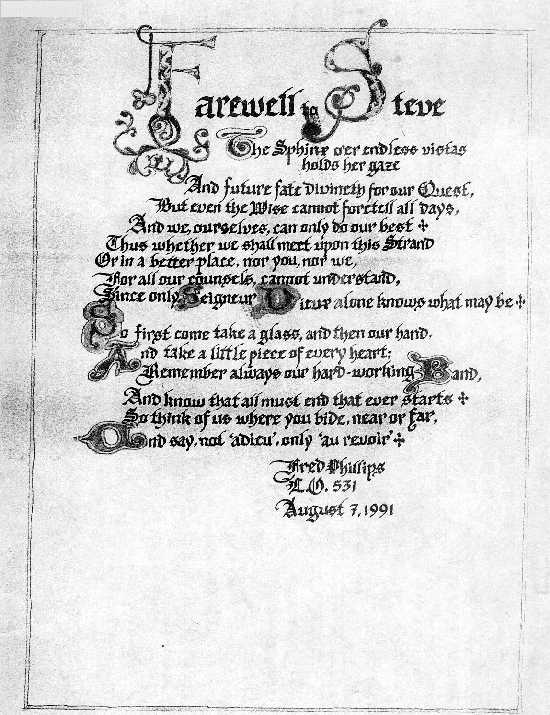 Farewell to Steve
The Sphinx o'er endless vistas
holds her gaze
And future fate divineth for our Quest,
But even the Wise cannot foretell all days,
And we, ourselves, can only do our best
Thus whether we shall meet upon this Strand
Or in a better place, nor you, nor we,
For all our counsels, cannot understand,
Since only Seigneur Dieux alone knows what may be
So first come take a glass, and then our hand.
And take a little piece of every heart;
Remember always our hard-working Band,
And know that all must end that ever starts
So think of us where you bide, near or far,
And say, not 'adieu', only 'au revoir'
Fred Phillips
L.O. 531
August 7, 1991